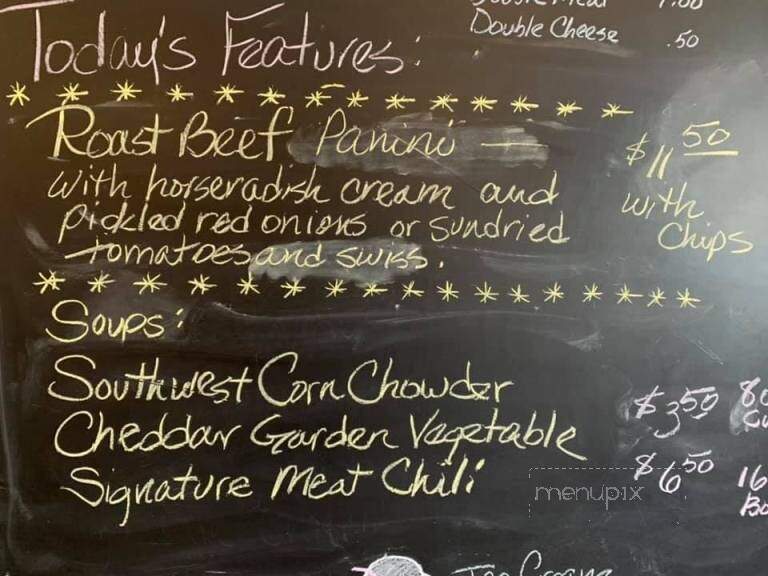 Double Meat 1.00
Double Cheese .50
Today's Features:
Roast Beef Panini — $11.50
with horseradish cream and with
pickled red onions or sundried Chips
tomatoes and swiss.
Soups:
Southwest Corn Chowder
Cheddar Garden Vegetable $3.50
Signature Meat Chili $6.50 16
menupix